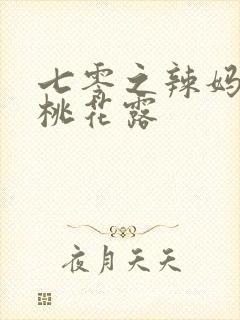 七零之辣妈
桃花露
夜月天天